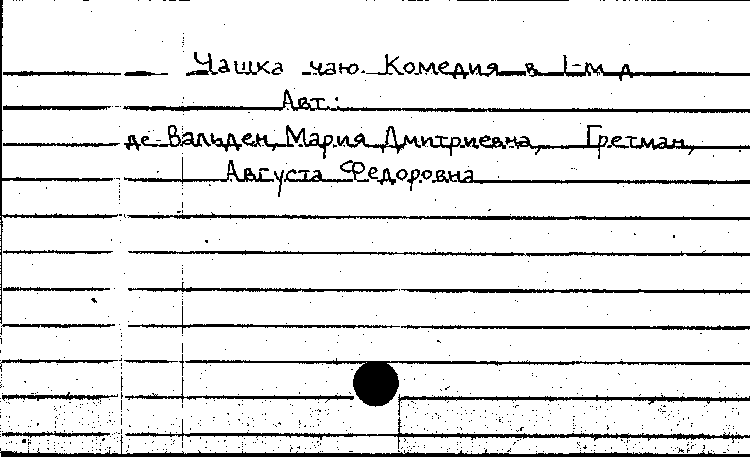 Чашка чаю. Комедия в 1-м д
Авт.:
де-Вальден, Мария Дмитриевна, Гретман,
Августа Федоровна